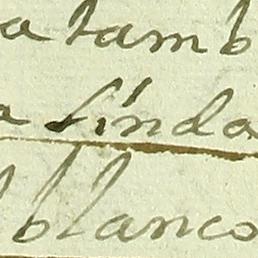 a tamb
a linda
l blanco